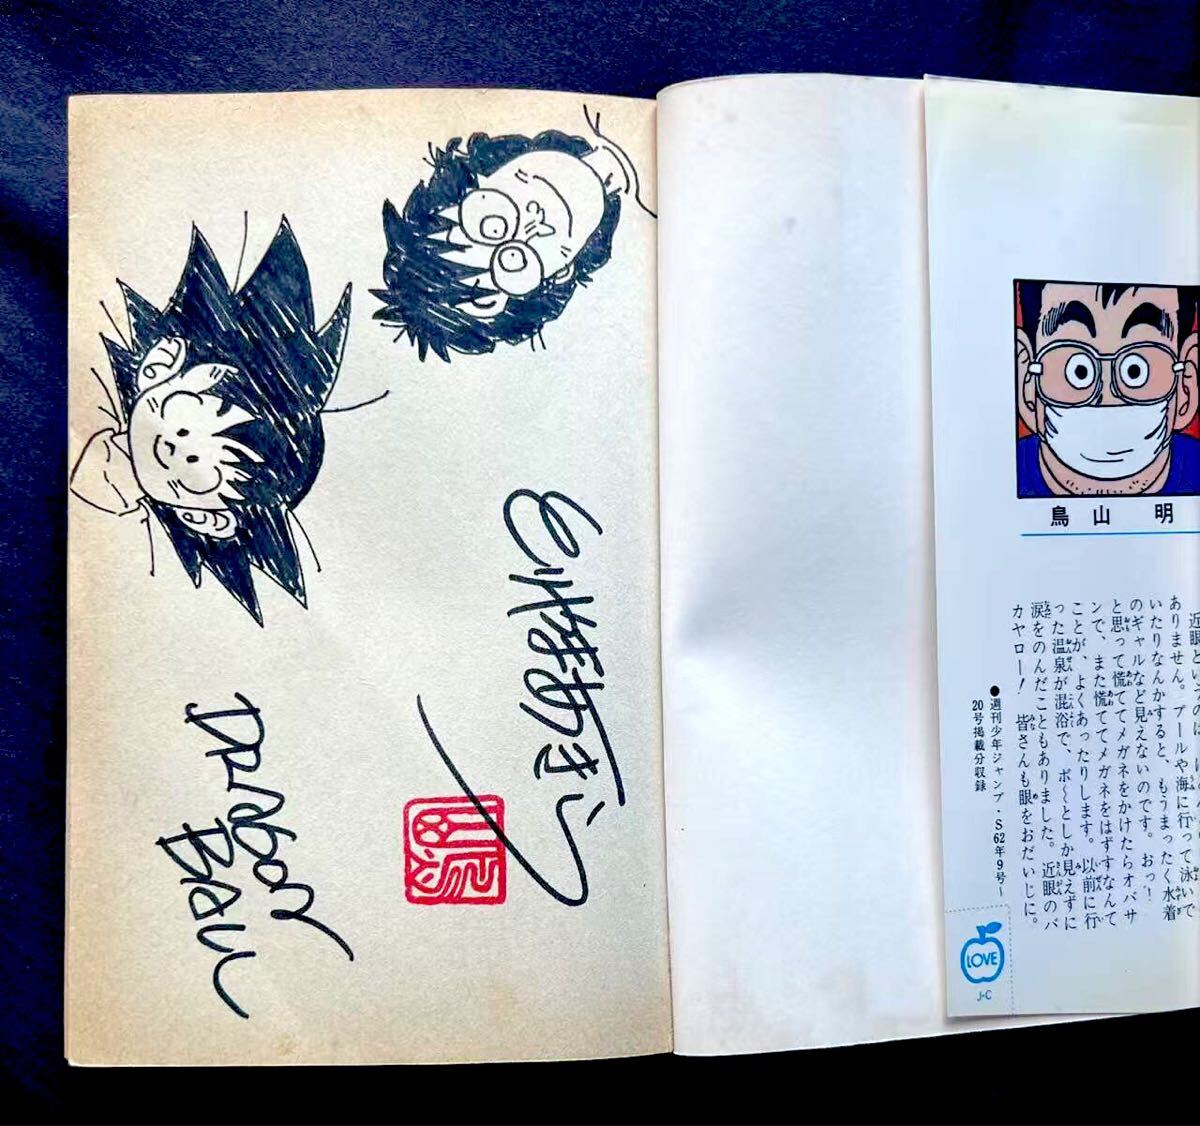 とりやまあきら
DRAGON
BALL
鳥山 明
ありません。プールや海に行って泳いで
いたりなんかすると、もうまったく水着
のギャルなど見えないのです。おっ！
と思って慌ててメガネをかけたらオバサ
ンで、また慌ててメガネをはずすなんて
ことが、よくあったりします。以前に行
った温泉が混浴で、ボ〜としか見えずに
涙をのんだこともありました。近眼のバ
カヤロー！ 皆さんも眼をおだいじに。
●週刊少年ジャンプ・S62年9号〜
20号掲載分収録
LOVE
J・C